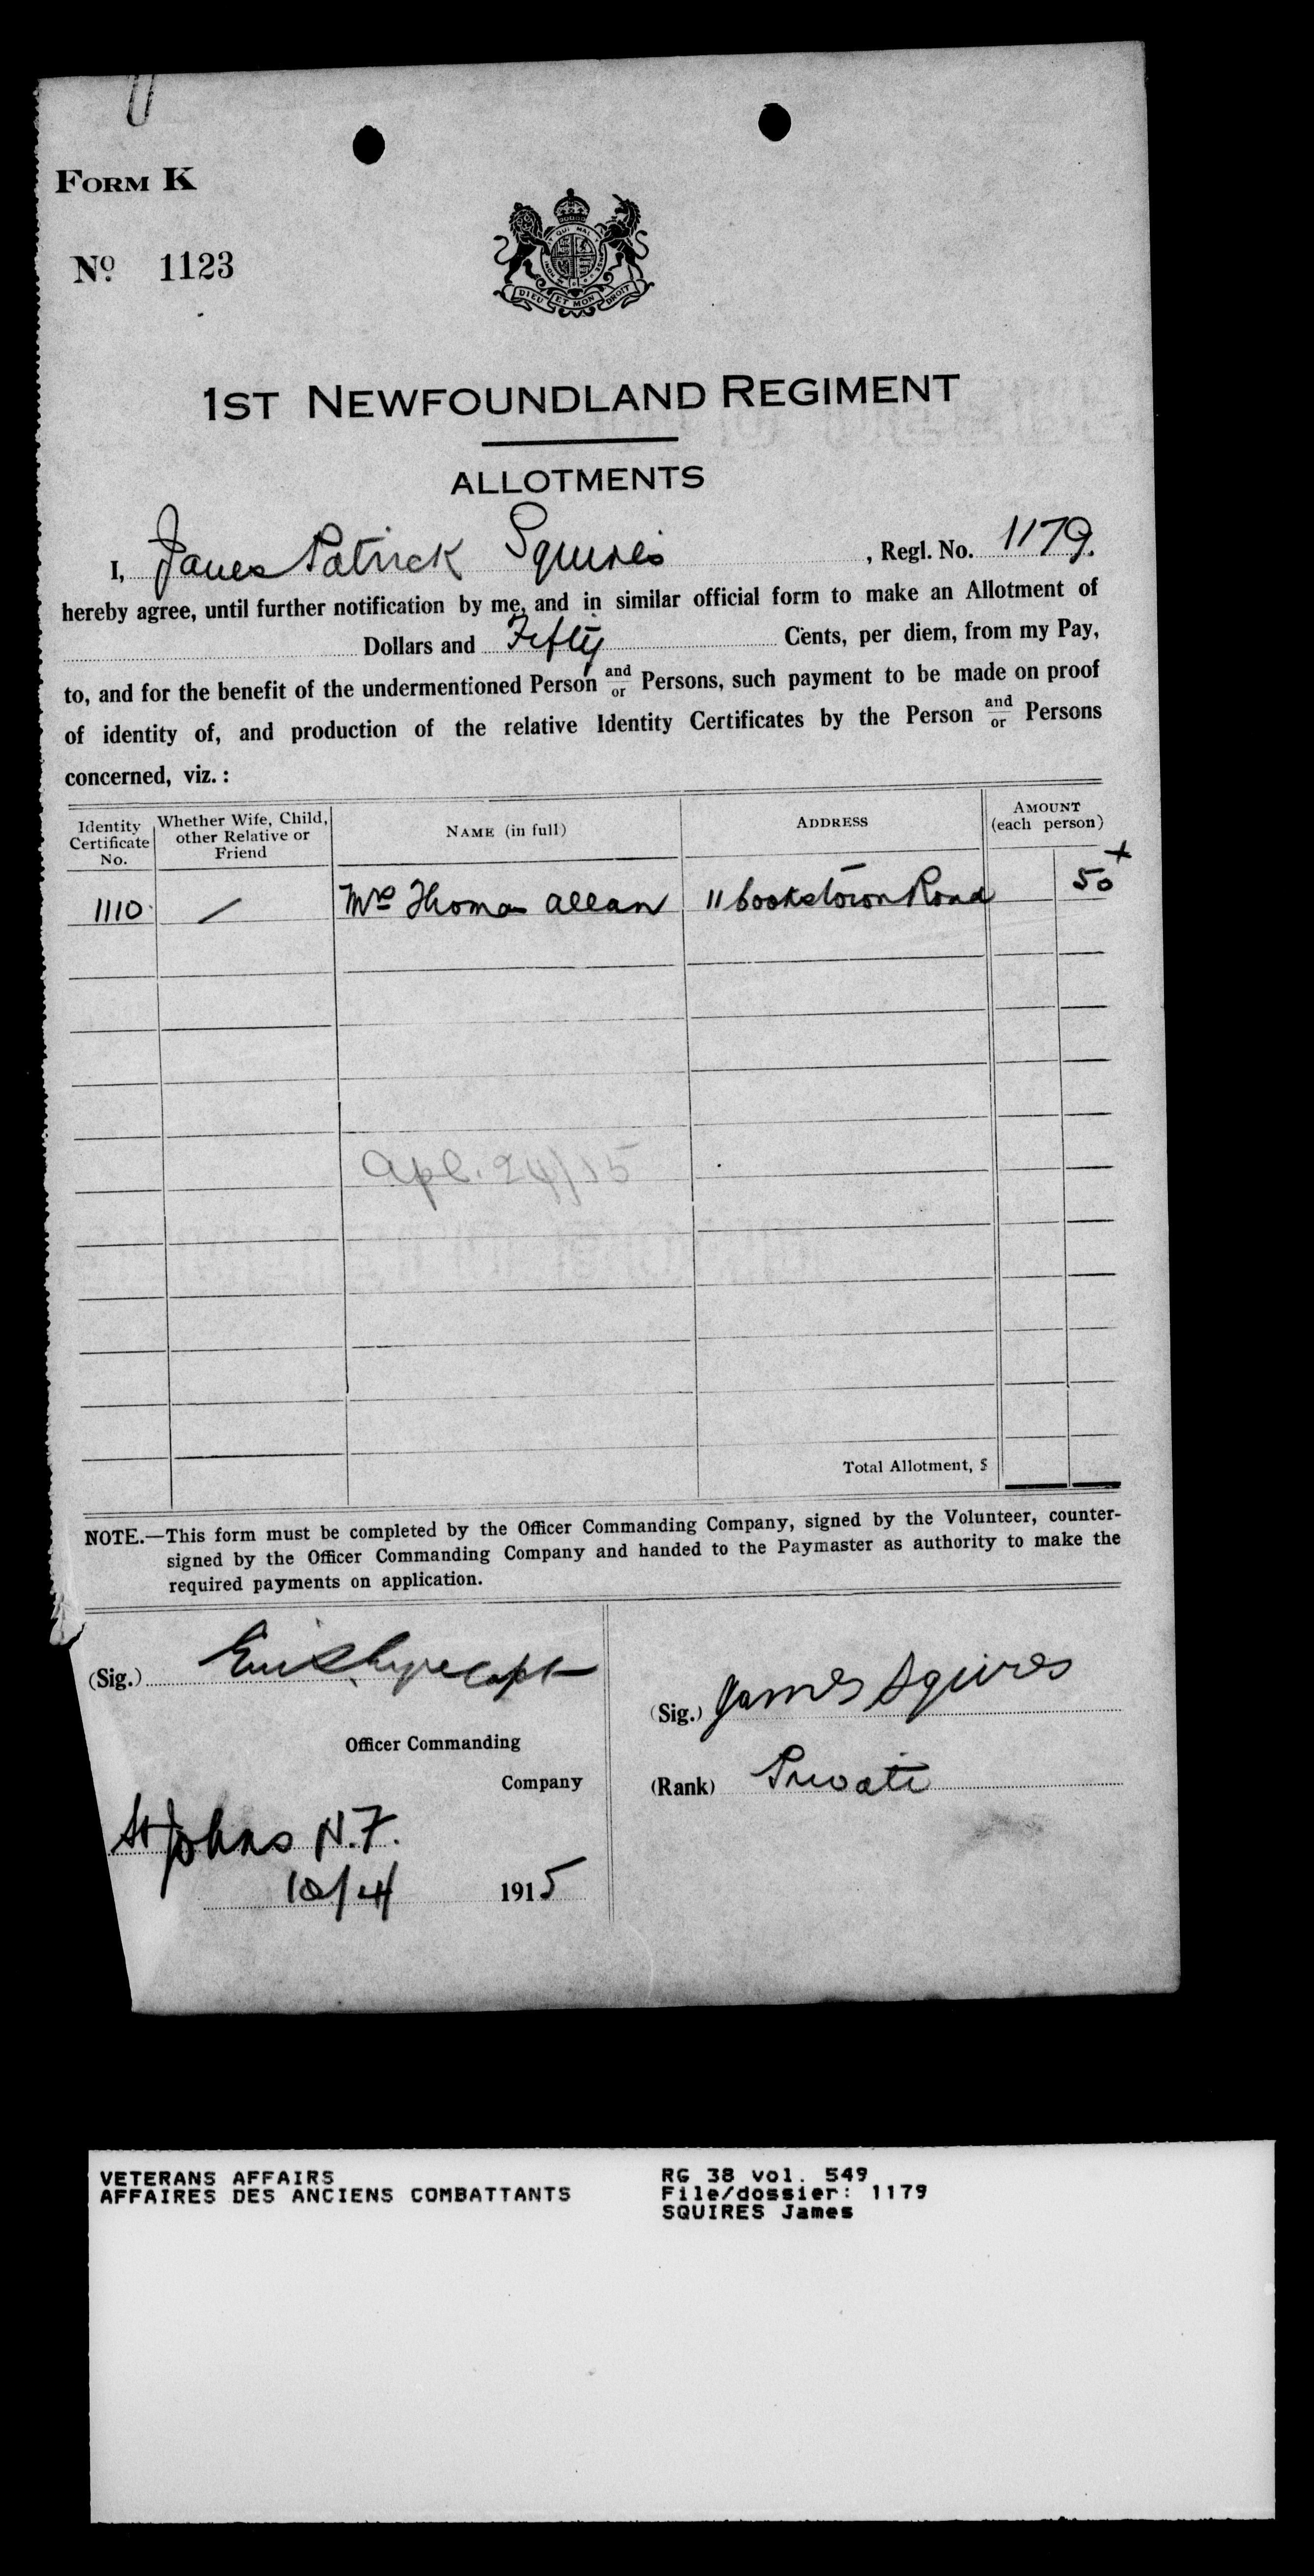 FORM K
No. 1123
QUI MAL
DIEU ET MON DROIT
1ST NEWFOUNDLAND REGIMENT
ALLOTMENTS
I, James Patrick Squires, Regl. No. 1179.
hereby agree, until further notification by me, and in similar official form to make an Allotment of
Dollars and Fifty Cents, per diem, from my Pay,
to, and for the benefit of the undermentioned Person and/or Persons, such payment to be made on proof
of identity of, and production of the relative Identity Certificates by the Person and/or Persons
concerned, viz. :
Identity Certificate No. Whether Wife, Child, other Relative or Friend NAME (in full) ADDRESS AMOUNT (each person)
1110 / Mrs Thomas Allan 11 Cookstown Road 50
Apl. 24/15
Total Allotment, $
NOTE.—This form must be completed by the Officer Commanding Company, signed by the Volunteer, counter-
signed by the Officer Commanding Company and handed to the Paymaster as authority to make the
required payments on application.
(Sig.) Capt
Officer Commanding
Company
(Sig.) James Squires
(Rank) Private
St Johns N.F.
1915
VETERANS AFFAIRS
AFFAIRES DES ANCIENS COMBATTANTS
RG 38 vol. 549
File/dossier: 1179
SQUIRES James